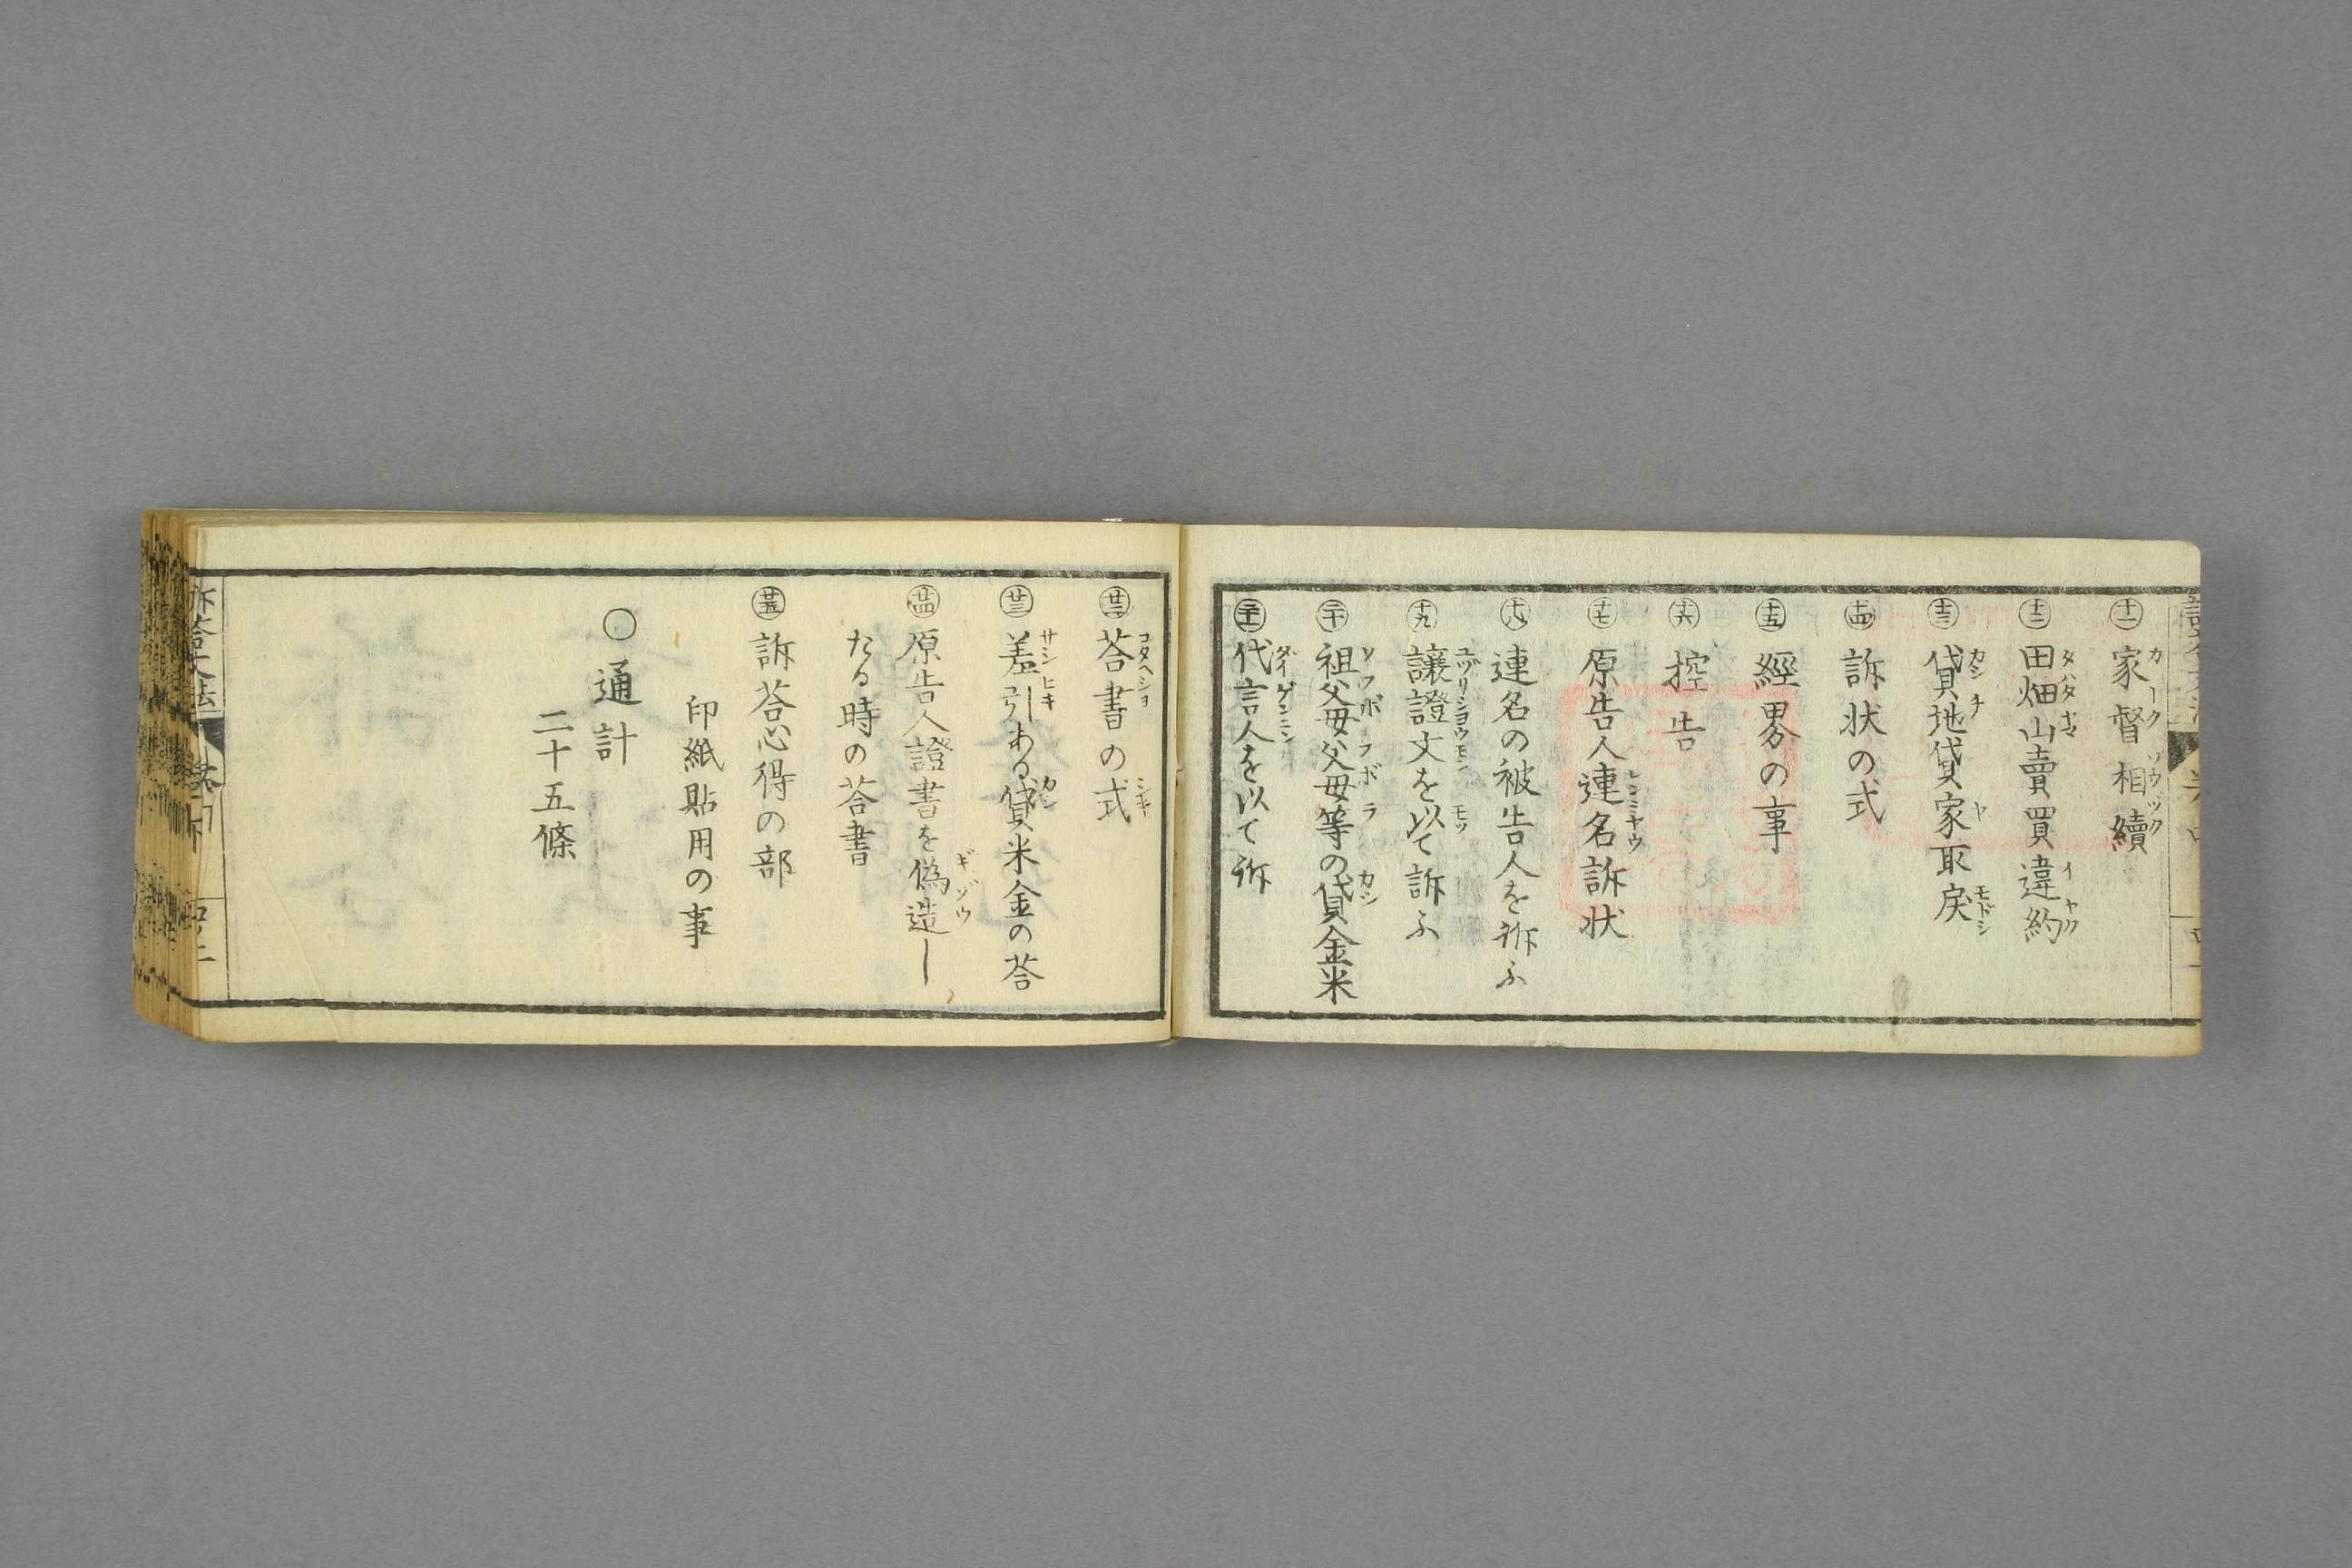 ㊉一 家督相續
㊉二 田畑山賣買違約
㊉三 貸地貸家取戻
㊉四 訴状の式
㊉五 經界の事
㊉六 控告
㊉七 原告人連名訴状
㊉八 連名の被告人を訴ふ
㊉九 譲證文を以て訴ふ
二十 祖父母父母等の貸金米
二十一 代言人を以て訴
廿二 荅書の式
廿三 差引ある貸米金の荅
廿四 原告人證書を偽造し
たる時の荅書
廿五 訴荅心得の部
印紙貼用の事
〇通計
二十五條
訴荅文法